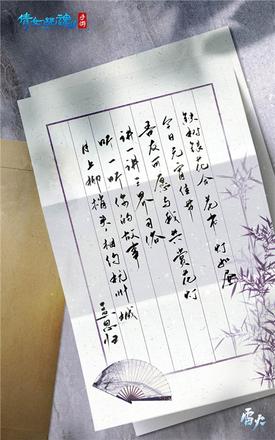 倩女幽魂
手游
铁树银花合 花市灯如昼
今日元宵佳节
吾友可愿与我共赏花灯
讲一讲三界习俗
听一听你的故事
月上柳梢头 相约杭州城
孟思归
雷火